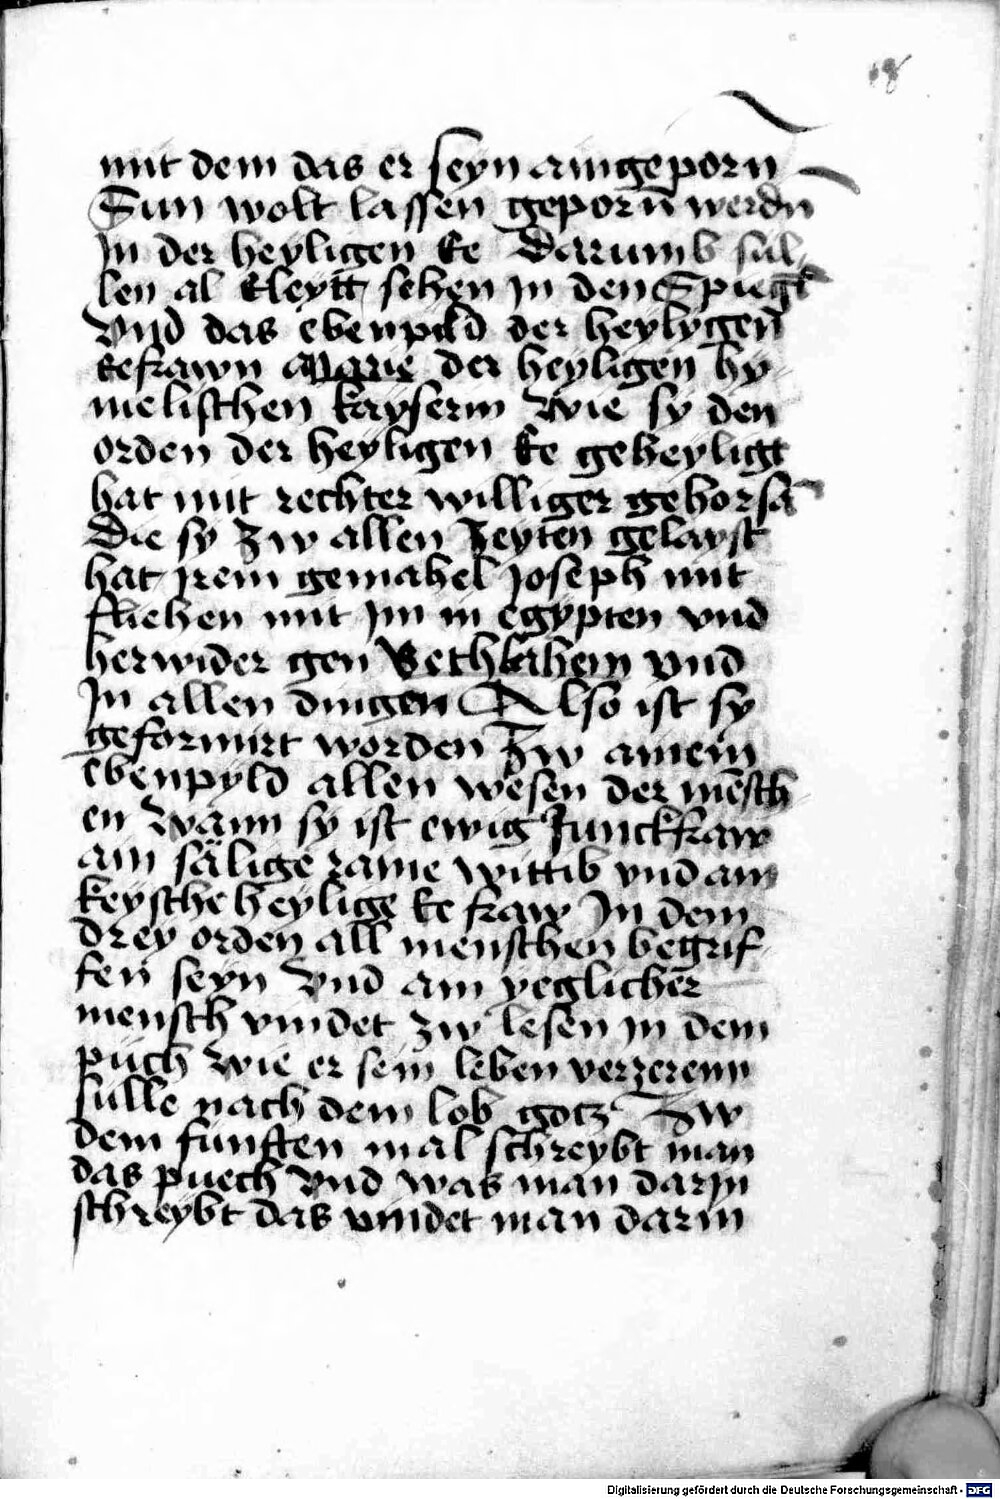 18
mit dem das er seyn aingeporn
Sun wolt lassen geporn̄ werdn
Jn der heyligen Ee Darumb sul
len al Eleytt sehen Jn den Spiegl
Vnd das ebenpild der heyligen̄
Eefrawn Marie der heyligen hy
melischen kayserin Wie sy den
orden der heyligen Ee geheyligt
hat mit rechter williger gehorsā
Die sy Zw allen Zeyten gelayst
hat jrem gemahel Joseph mit
fliehen mit Jm in egypten vnd
herwider gen Bethlahem vnd
Jn allen dingen Also ist sy
geformirt worden Zw ainem
ebenpyld allen wesen der mēsch
en Wann sy ist ewig Junckfraw
ain sälige raine wittib vnd ain
keysche heylige Ee fraw Jn dem
drey orden all menschen begrif
fen seyn Vnd ain yeglicher
mensch vindet zw lesen Jn dem
puch Wie er sein leben verzerenn
sulle nach dem lob gotz Zw
dem funften mal schreybt man
das puech Vnd was man darJn
schreybt das vindet man darin
Digitalisierung gefördert durch die Deutsche Forschungsgemeinschaft - DFG